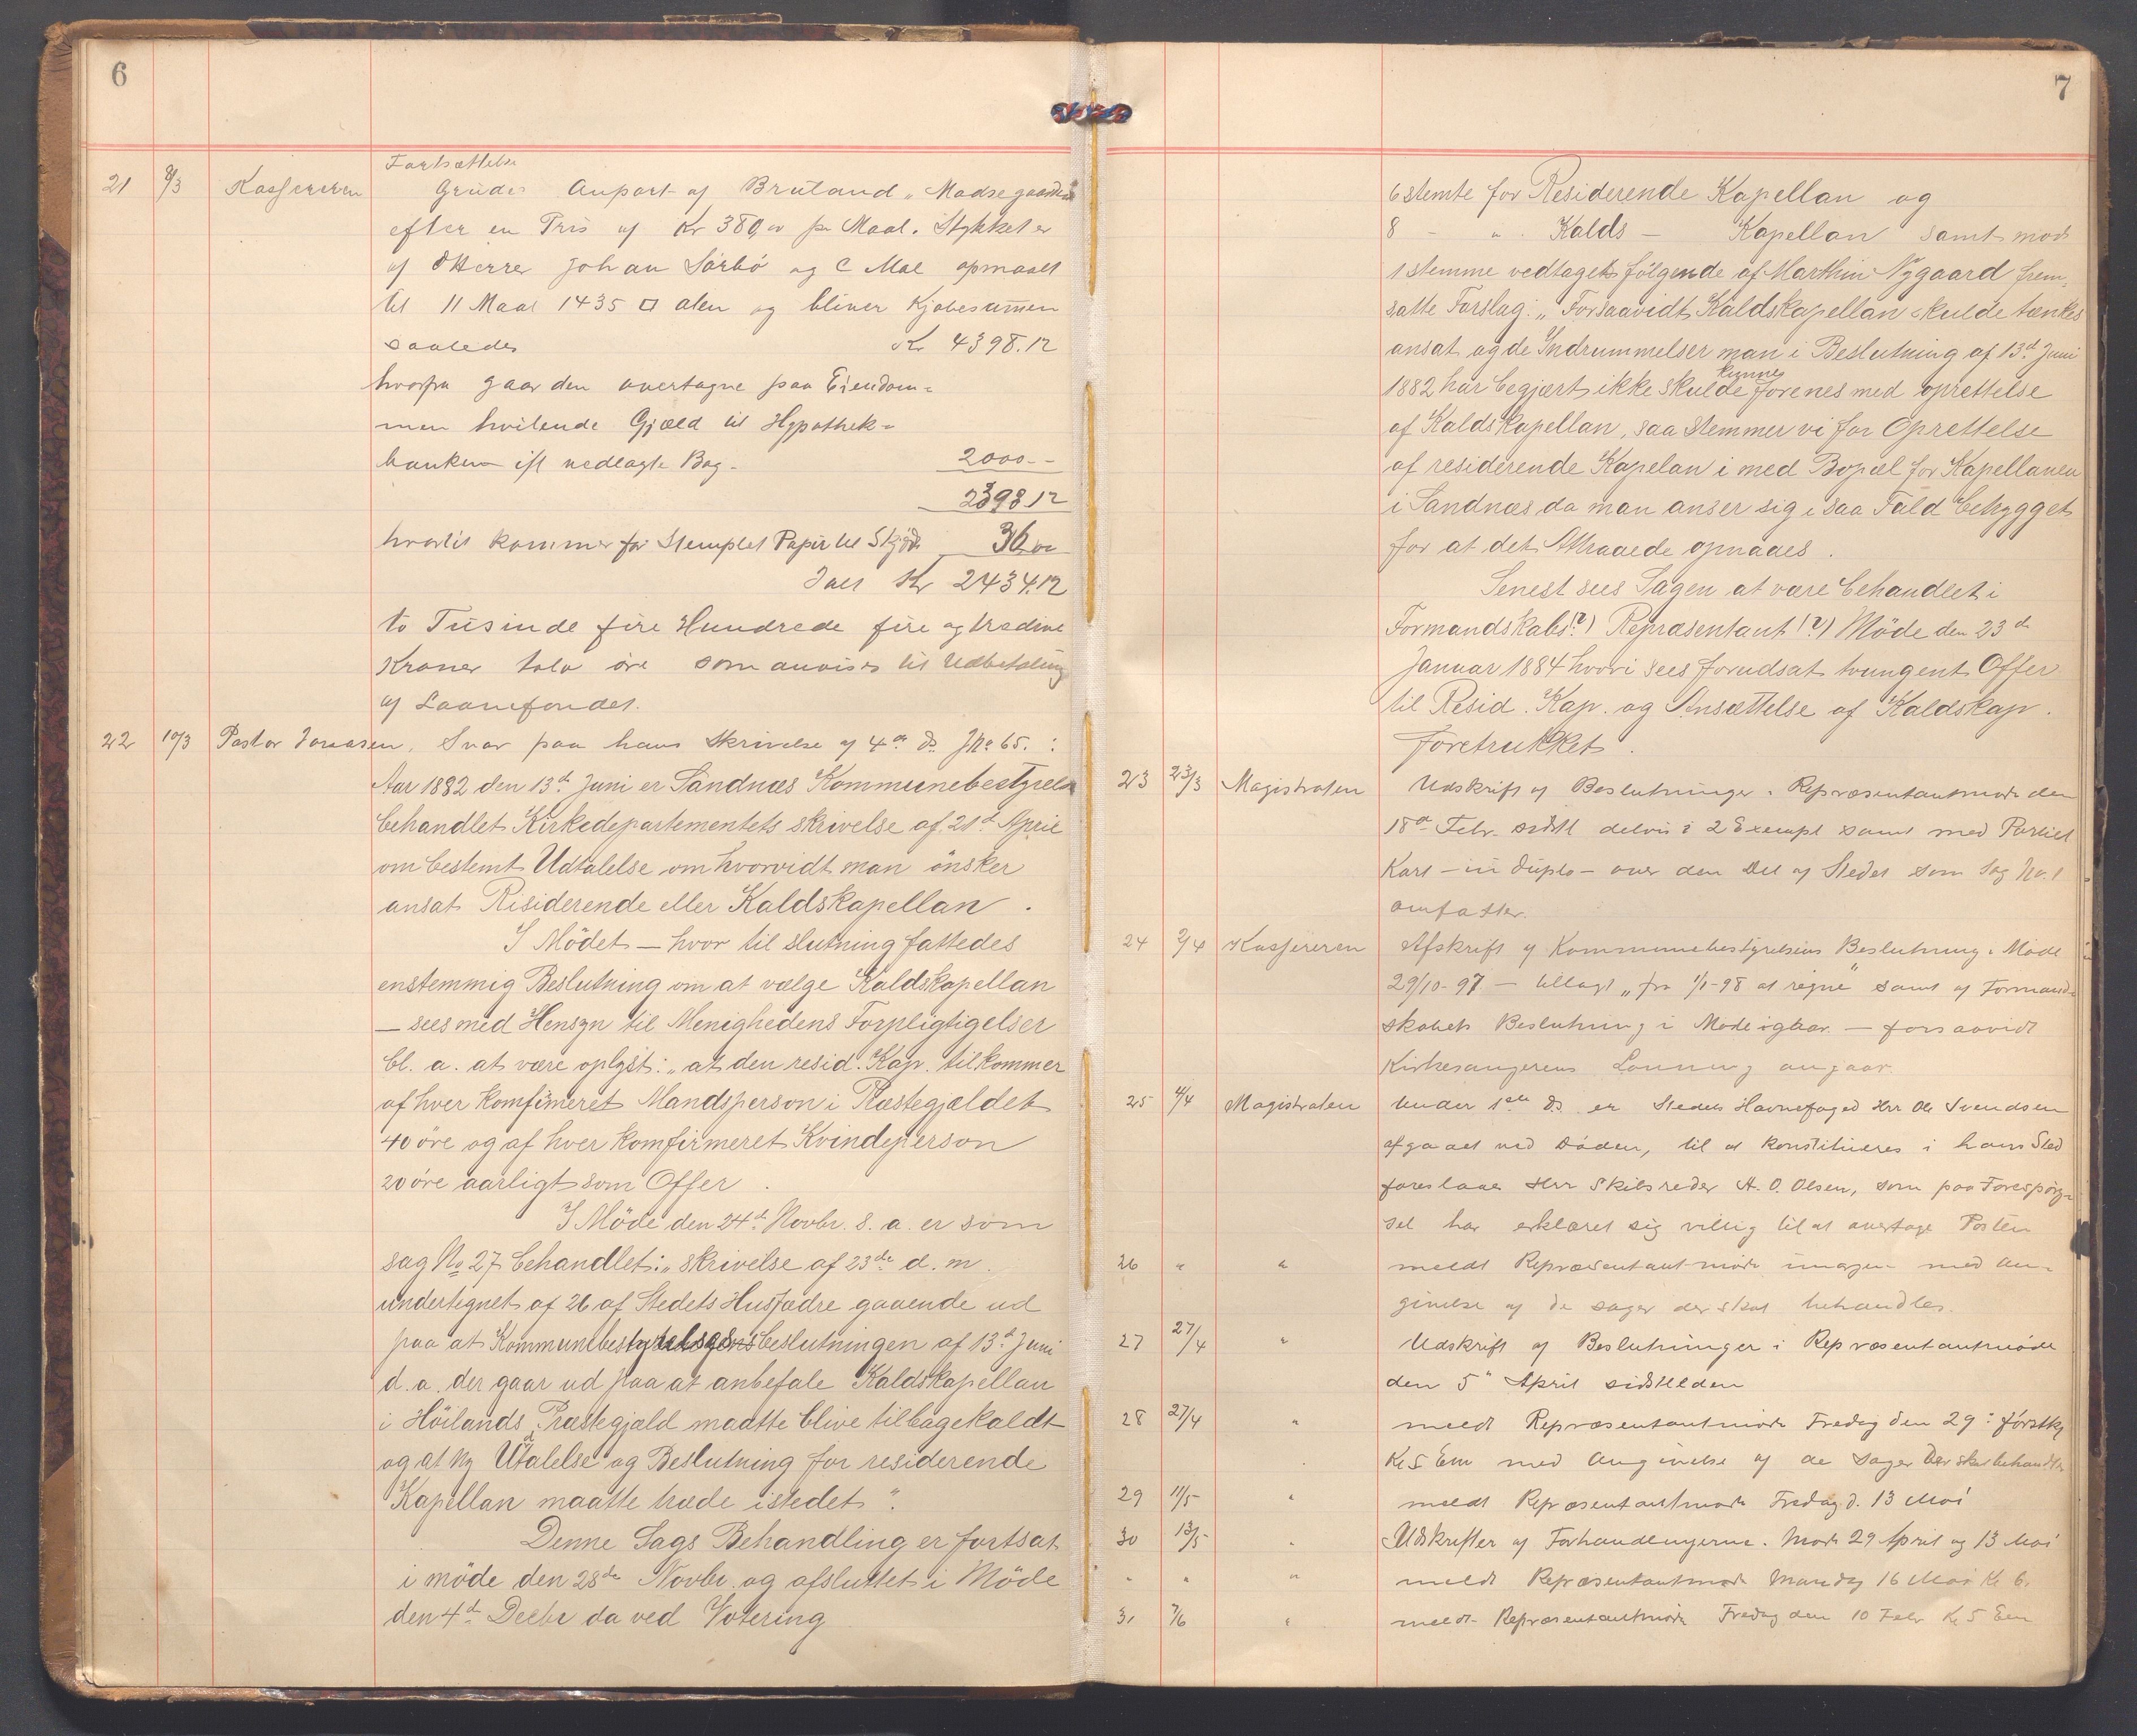 6
Fortsættelse
21 8/3 Kassereren Grudes Anpart af Bruland „Madsegaarden
efter en Pris af Kr 380,00 pr Maal. Stykket er
af DHerrer Johan Sørbö og C Moe opmaalt
til 11 Maal 1435 □ alen og bliver Kjøbesummen
saaledes Kr 4398.12
hvorfra gaar den overtagne paa Eiendom-
men hvilende Gjæld til Hypothek-
banken ifl vedlagte Bog - 2000 --
2398 12
hvortil kommer for Stemplet Papir til Skjøde 36 00
Ialt Kr 2434.12
to Tusinde fire Hundrede fire og tredive
Kroner tolv øre som anvises til Udbetaling
af Laanefondet.
22 10/3 Pastor Svar paa hans Skrivelse af 4de ds JNo 65. :
Aar 1882 den 13de Juni er Sandnæs Kommunebestyrelse
behandlet Kirkedepartementets skrivelse af 21de April
om bestemt Udtalelse om hvorvidt man önsker
ansat Risiderende eller Kaldskapellan.
I Mödet — hvor til slutning fattedes
enstemmig Beslutning om at vælge Kaldskapellan
— sees med Hensyn til Menighedens Forpligtigelser
bl. a. at være oplyst: „at den resid. Kap. tilkommer
af hver komfimeret Mandsperson i Præstegjældet
40 öre og af hver komfirmeret Kvindeperson
20 öre aarligt som Offer.
I Möde den 24de Novbr. s. a. er som
sag No 27 behandlet: „skrivelse af 23de d. m.
undertegnet af 26 af Stedets Husfædre gaaende ud
paa at Kommunebestyrelsens beslutningen af 13de Juni
d. a. der gaar ud paa at anbefale Kaldskapellan
i Höilands Præstegjæld maatte blive tilbagekaldt
og at ny Utalelse og Beslutning for residerende
Kapellan maatte træde istedet“.
Denne Sags Behandling er fortsat
i möde den 28de Novbr. og afsluttet i Möde
den 4de Decbr da ved Votering
7
6 stemte for Residerende Kapellan og
8 - „ Kalds - Kapellan samt mod
1 stemme vedtaget følgende af Marthin Nygaard frem-
satte Forslag: „Forsaavidt Kaldskapellan skulde tænkes
ansat og de Indrummelser man i Beslutning af 13de Juni
kunne
1882 har begjært ikke skulde forenes med oprettelse
af Kaldskapellan, saa stemmer vi for Oprettelse
af residerende Kapelan i med Bopæl for Kapellanen
i Sandnæs da man anser sig i saa Fald betrygget
for at det Attraaede opnaaes.
Senest sees Sagen at være behandlet i
Formandskabs(?) Repræsentant(?) Möde den 23de
Januar 1884 hvori sees forudsat tvungent Offer
til Resid. Kap. og Ansættelse af Kaldskap.
foretrukket.
23 23/3 Magistraten Udskrift af Beslutninger i Repræsentantmøde den
18de Febr. sidstl delvis i 2 Exempl samt med Partiel
Kart — in duplo — over den Del af Stedet som Sag No. 1
omfatter.
24 2/4 Kassereren Afskrift af Kommunebestyrelsens Beslutning i Møde
29/10-97 — tillagt „fra 1/1-98 at regne“ samt af Formand-
skabets Beslutning i Møde igaar — forsaavidt
Kirkesangerens Lønning angaar.
25 4/4 Magistraten Under 1ste ds. er Stedets Havnefoged Hrr Ole Svendsen
afgaaet ved Døden, til at konstitueres i hans Sted
foreslaaes Hrr Skibsreder A. O. Olsen, som paa Forespørg-
sel har erklæret sig villig til at overtage Posten
26 „ „ meldt Repræsentantmøde imorgen med An-
givelse af de sager der skal behandles.
27 27/4 „ Udskrift af Beslutninger i Repræsentantmøde
den 5te April sidstleden
28 27/4 „ meldt Repræsentantmøde Fredag den 29: førstk
Kl 5 Em med Angivelse af de Sager der skal behandles
29 11/5 „ meldt Repræsentantmøde Fredag d. 13 Mai
30 13/5 „ Udskrifter af Forhandlingerne i Møde 29 April og 13 Mai
„ „ „ meldt Repræsentantmøde Mandag 16 Mai Kl 6.
31 7/6 „ meldt Repræsentantmøde Fredag den 10 Febr Kl 5 Em